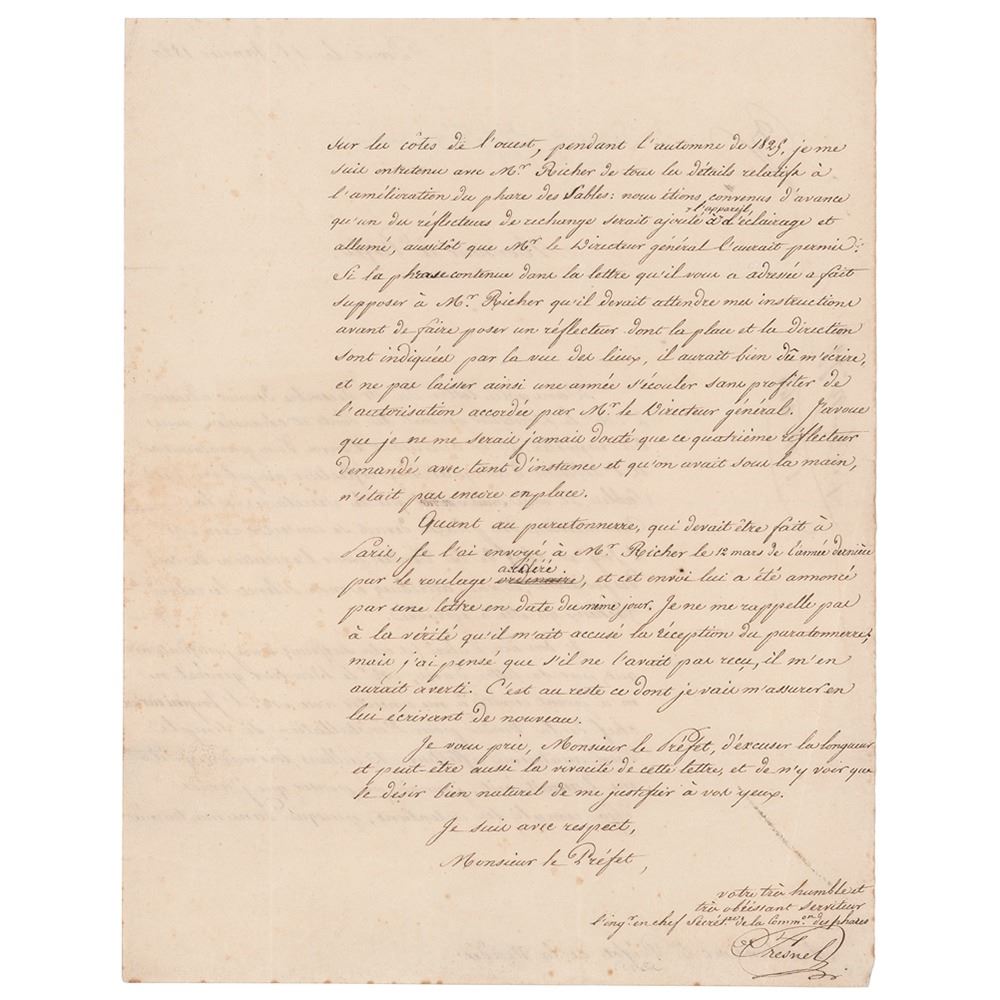 sur les côtes de l'ouest, pendant l'automne de 1825, je me
suis entretenu avec Mr. Richer de tous les détails relatifs à
l'amélioration du phare des Sables: nous étions convenus d'avance
qu'un des réflecteurs de rechange serait ajouté à l'appareil d'éclairage et
allumé, aussitôt que Mr. le Directeur général l'aurait permis.
Si la phrase contenue dans la lettre qu'il vous a adressée a fait
supposer à Mr. Richer qu'il devait attendre mes instructions
avant de faire poser un réflecteur dont la place et la direction
sont indiquées par la vue des lieux, il aurait bien dû m'écrire,
et ne pas laisser ainsi une année s'écouler sans profiter de
l'autorisation accordée par Mr. le Directeur général. J'avoue
que je ne me serais jamais douté que ce quatrième réflecteur
demandé avec tant d'instance et qu'on avait sous la main,
n'était pas encore en place.
Quant au paratonnerre, qui devait être fait à
Paris, je l'ai envoyé à Mr. Richer le 12 mars de l'année dernière
par le roulage ordinaire accéléré, et cet envoi lui a été annoncé
par une lettre en date du même jour. Je ne me rappelle pas
à la vérité qu'il m'ait accusé la réception du paratonnerre;
mais j'ai pensé que s'il ne l'avait pas reçu, il m'en
aurait averti. C'est au reste ce dont je vais m'assurer en
lui écrivant de nouveau.
Je vous prie, Monsieur le Préfet, d'excuser la longueur
et peut-être aussi la vivacité de cette lettre, et de n'y voir que
le désir bien naturel de me justifier à vos yeux.
Je suis avec respect,
Monsieur le Préfet,
votre très humble et
très obéissant serviteur
l'ingr. en chef Secrét.re de la Comm.on des phares
Fresnel